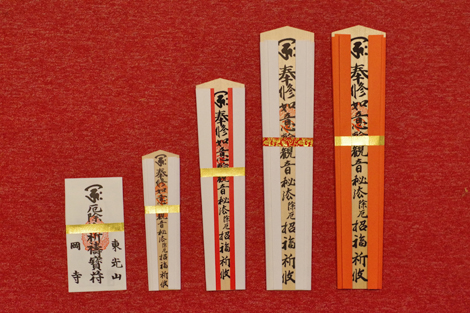 東光山
厄除祈祷寶符
岡寺
奉修如意輪観音秘法除厄招福祈攸
奉修如意輪観音秘法除厄招福祈攸
奉修如意輪観音秘法除厄招福祈攸
奉修如意輪観音秘法除厄招福祈攸